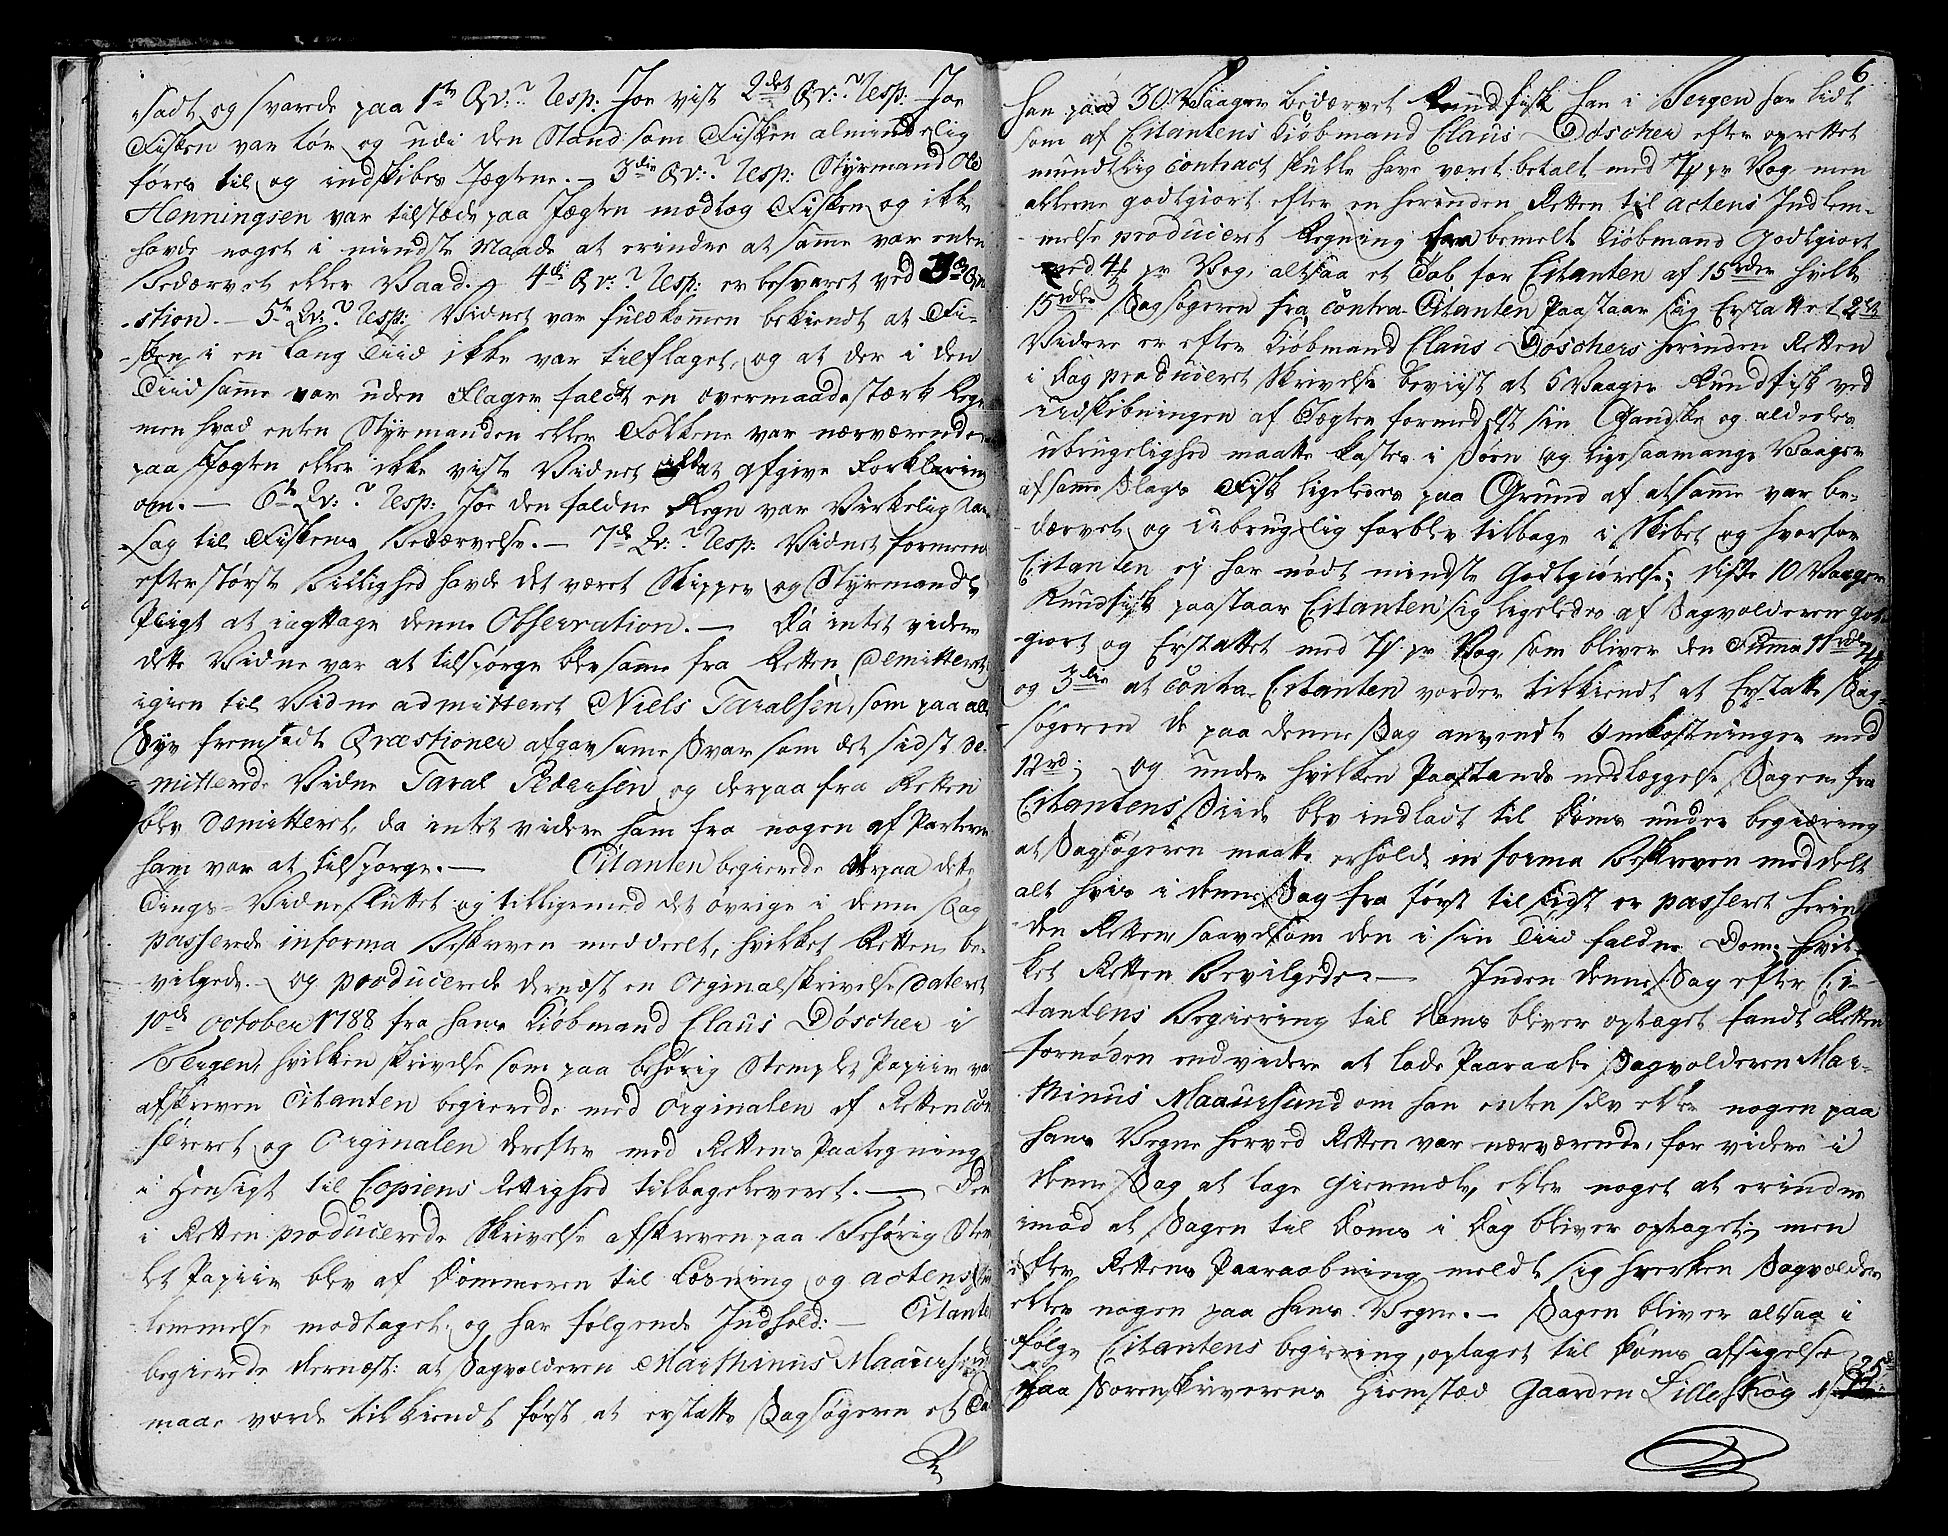 sadt og svarede paa 1te Qv:? Resp: Joe vist 2det Qv:? Resp: Joe
Fisken var tør og udi den Stand som Fisken almindelig
føres til og indskibes Jægtene. – 3die Qv:? Resp: Styrmand Ole
Henningsen var tilstæde paa Jægten modtog Fisken og ikke
havde noget i mindste Maade at erindre at samme var enten
Bedærvet eller Vaad. – 4de Qv:? Resp: er besvaret ved 3de Qve
stion. – 5te Qv:? Resp: Vidnet var fuldkommen bekiendt at Fi-
sken i en lang Tiid ikke var tilflaget, og at der i den
Tiid samme var uden Flager faldt en overmaade stærk Regn
men hvad enten Styrmanden eller Folkene var nærværende
paa Jægten eller ikke viste Vidnet ikke at afgive Forklaring
om. – 6te Qv:? Resp: Joe den faldne Regn var Virkelig Aar-
sag til Fiskens Bedærvelse. – 7de Qv:? Resp: Vidnet formeen
efter største Billighed havde det været Skipper og Styrmands
Pligt at iagttage denne Observation. – Da intet videre
dette Vidne var at tilspørge blev samme fra Retten Demitteret
igien til Vidne admitteret Niels Taralsen, som paa alle
Syv fremsadte Qvæstioner afgav samme Svar som det sidst de-
mitterede Vidne Taral Pedersen og derpaa fra Retten
blev demitteret, da intet videre ham fra nogen af Parterne
ham var at tilspørge. – Citanten begierede derpaa dette
Tings-Vidne sluttet og tilligemed det øvrige i denne Sag
passerede in forma Beskreven meddeelt, hvilket Retten be-
vilgede. – og producerede dernæst en Orginal skrivelse dateret
10de October 1788 fra hans Kiøbmand Claus Döscher i
Bergen, hvilken Skrivelse som paa behørig Stemplet Papiir var
afskreven Citanten begierede med Orginalen af Retten Con-
fereret og Orginalen derefter med Rettens Paategning
i Hensigt til Copiens Rettighed tilbageleveret. – Den
i Retten producerede Skrivelse afskreven paa Behørig Stem
let Papiir blev af Dommeren til Læsning og actens In
lemmelse modtaget, og har følgende Indhold: – Citante
begierede dernæst: at Sagvolderen Marthinus Maaursund
maae vorde tilkiendt først at erstatte Sagsøgeren et Ta
6
han paa 30 Vaager bedærvet Rundfisk han i Bergen har lidt
som af Citantens Kiøbmand Claus Döscher efter oprettet
mundtlig contract skulle have været betalt med 7 pr Vog, men
allene godtgiort efter en herinden Retten til actens Indlem-
melse produceret Regning fra bemelte Kiøbmand Godtgiort
med 4 pr Vog, altsaa et Tab for Citanten af 15rdlr hvilke
15rdlr Sagsøgeren fra contra-Citanten paastaar sig Erstattet 2det
Videre er efter Kiøbmand Claus Döschers herinden Retten
i Dag produceret Skrivelse beviist at 5 Vaager Rundfisk ved
udskibningen af Jægten formedelst sin Gandske og aldeles
ubrugelighed maatte kastes i Søen og ligesaamange Vaager
af samme Slags Fisk ligeledes paa Grund af at samme var be-
dærvet og ubrugelig forblev tilbage i Skibet og hvorfor
Citanten ej har nødt mindste Godtgiørelse; disse 10 Vaager
Rundfisk paastaar Citanten sig ligeledes af Sagvolderen Got-
giort og Erstattet med 7 pr Vog, som bliver den Summa 11rdlr
og 3die at contra-Citanten vorder tilkiendt at Erstatte Sag-
søgeren de paa denne Sag anvendte Omkostninger med
12rd; og under hvilken Paastands nedlæggelse Sagen fra
Citantens Siide blev indladt til Doms under begiæring
at Sagsøgeren maatte erholde in forma Beskreven meddelt
alt hvis i denne Sag fra først til sidst er passeret herin
den Retten saavelsom den i sin Tiid faldne Dom, hvil-
ket Retten Bevilgede. – Inden denne Sag efter Ci-
tantens Begiering til Doms bliver optaget fandt Retten
fornøden endvidere at lade Paaraabe Sagvolderen Mar-
thinus Maaursund om han enten selv eller nogen paa
hans Vegne herved Retten var nærværende, for videre i
denne Sag at tage Gienmæle, eller noget at erindre
imod at Sagen til Doms i Dag bliver optaget; men
efter Rettens Paaraabning meldte sig hverken Sagvolder
eller nogen paa hans Vegne. – Sagen bliver altsaa i
følge Citantens begiering, optaget til Doms afsigelse
paa Sorenskriverens Hiemstæd Gaarden Lilleskog 25de